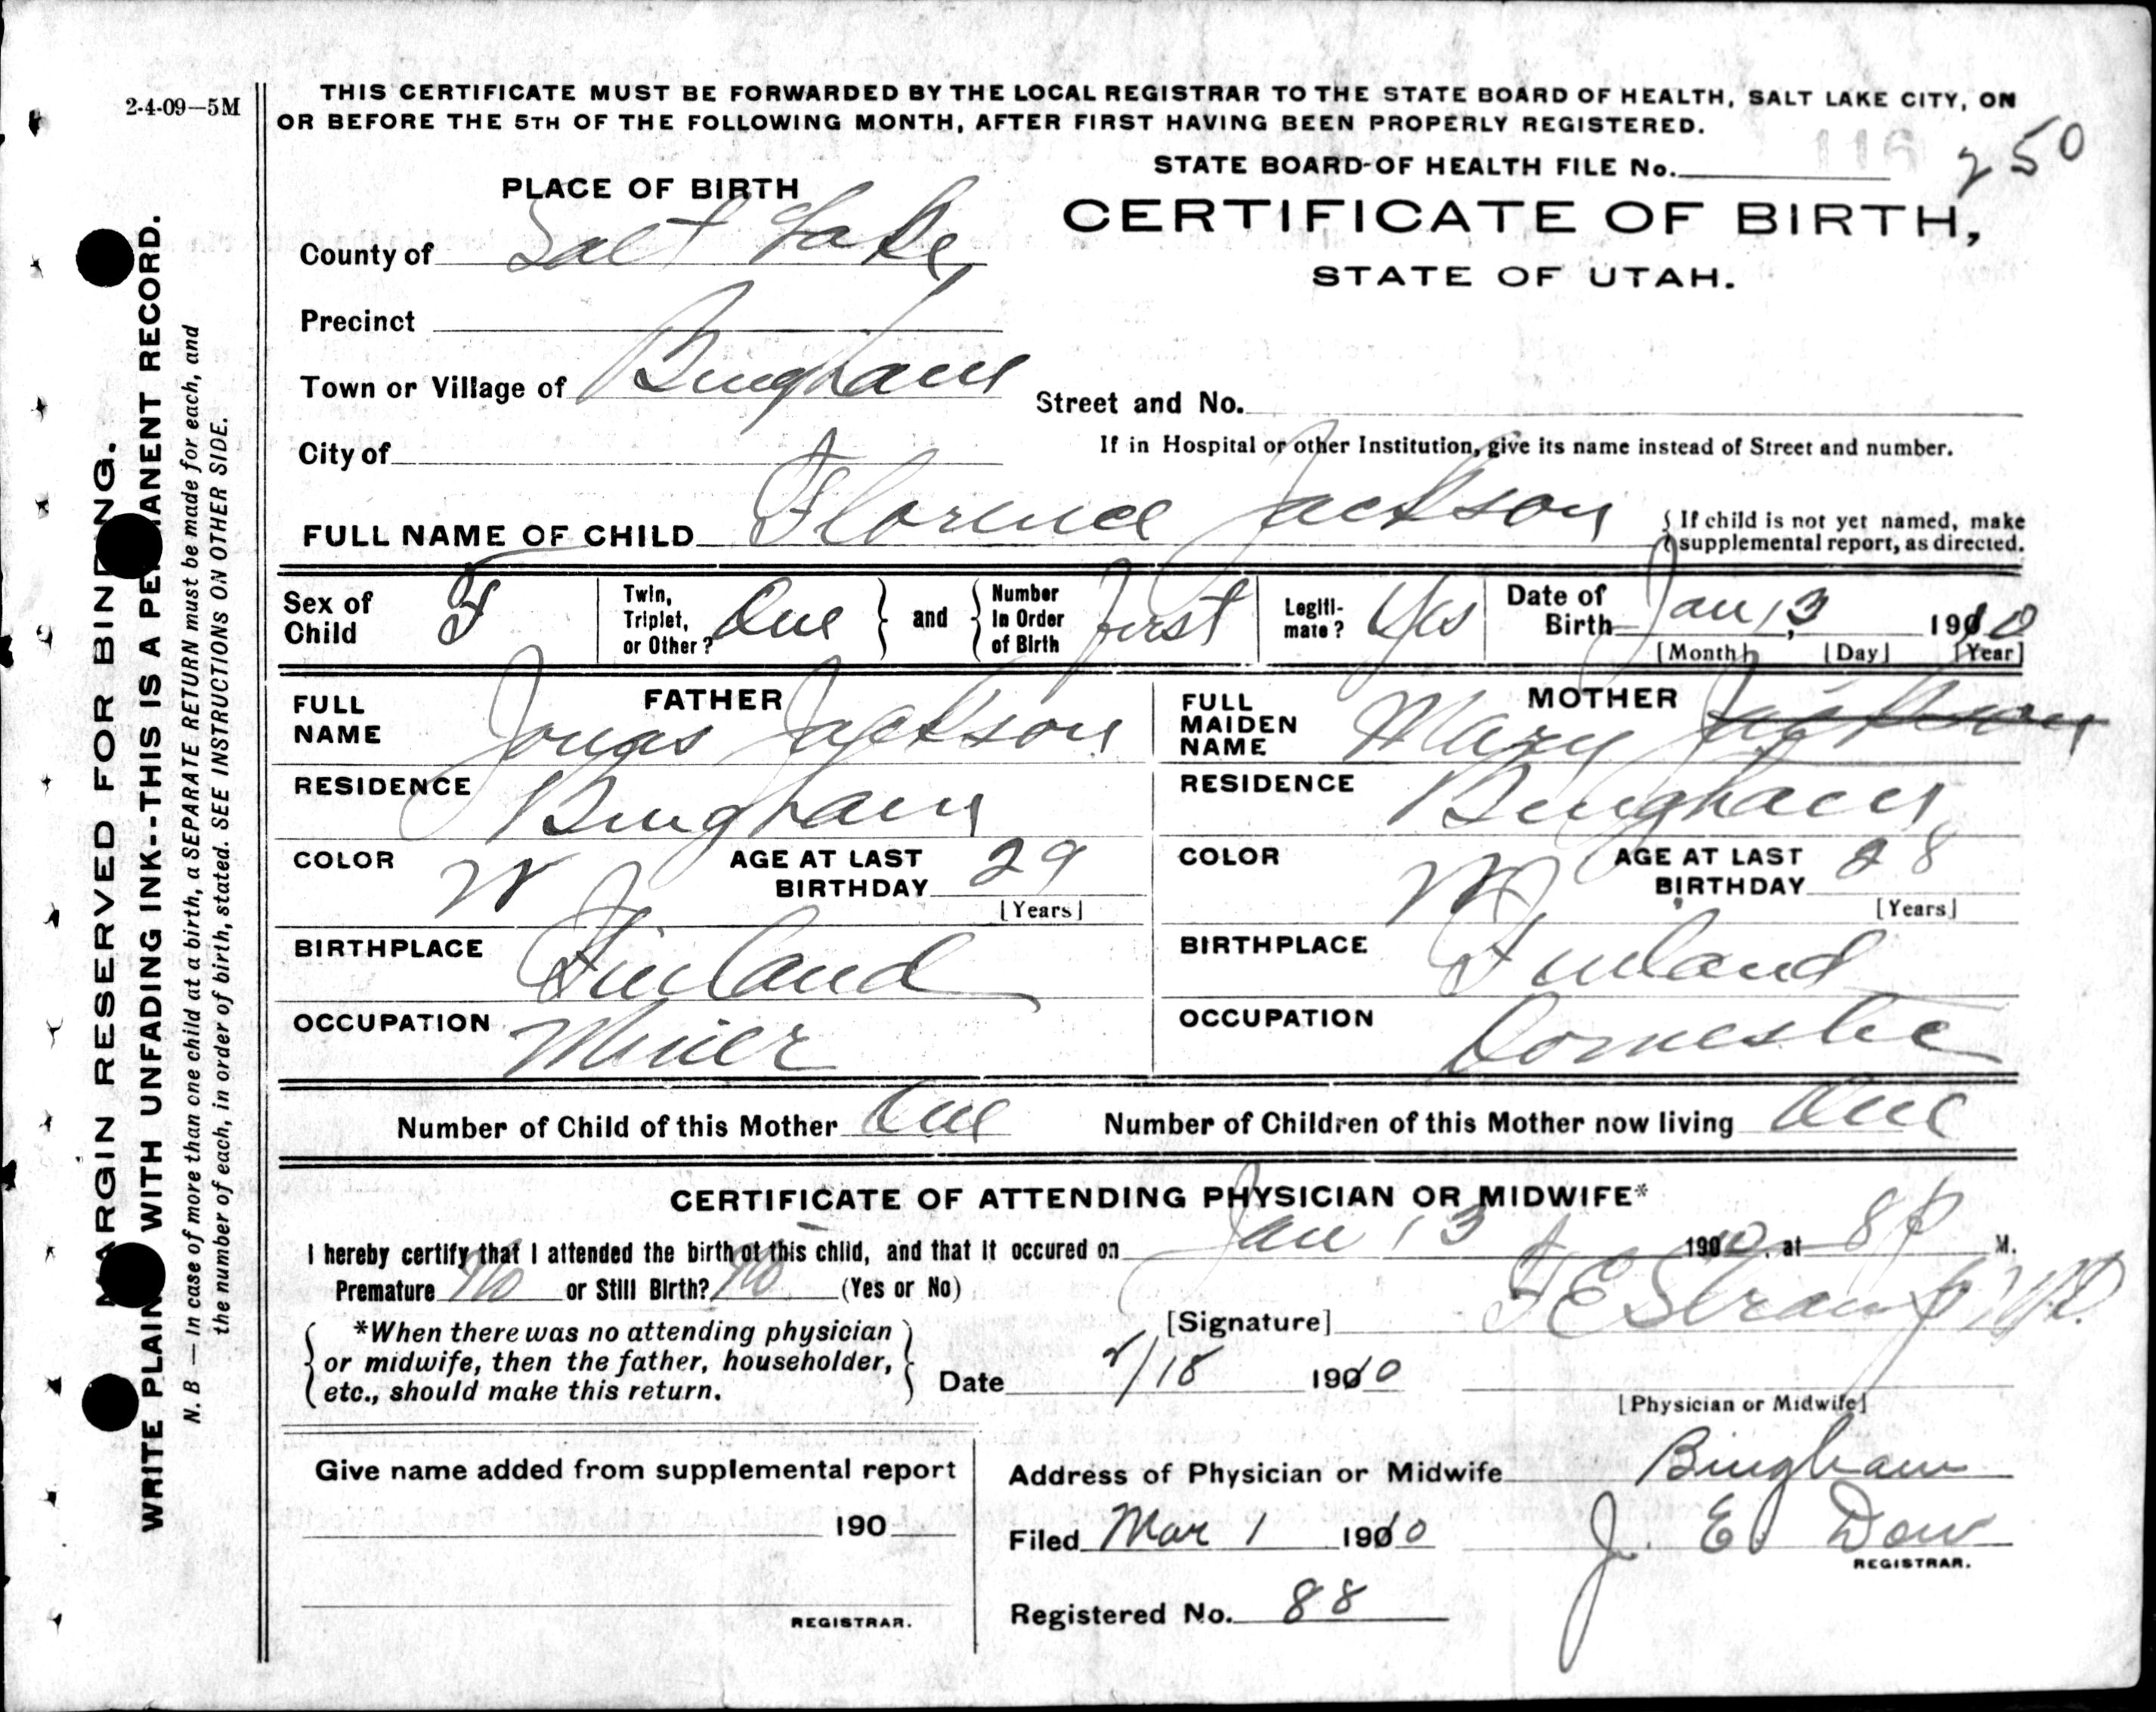 2-4-09—5M
THIS CERTIFICATE MUST BE FORWARDED BY THE LOCAL REGISTRAR TO THE STATE BOARD OF HEALTH, SALT LAKE CITY, ON
OR BEFORE THE 5TH OF THE FOLLOWING MONTH, AFTER FIRST HAVING BEEN PROPERLY REGISTERED.
STATE BOARD OF HEALTH FILE No. 116 250
CERTIFICATE OF BIRTH,
STATE OF UTAH.
PLACE OF BIRTH
County of Salt Lake
Precinct
Town or Village of Bingham
Street and No.
City of
If in Hospital or other Institution, give its name instead of Street and number.
FULL NAME OF CHILD Florence Jackson
If child is not yet named, make
supplemental report, as directed.
Sex of Child F
Twin, Triplet, or Other? One and Number In Order of Birth first
Legiti-mate? Yes
Date of Birth Jan 13, 1910
[Month] [Day] [Year]
FATHER
FULL NAME Jonas Jackson
RESIDENCE Bingham
COLOR W AGE AT LAST BIRTHDAY 29
[Years]
BIRTHPLACE Finland
OCCUPATION Miner
MOTHER
FULL MAIDEN NAME Mary Jackson
RESIDENCE Bingham
COLOR W AGE AT LAST BIRTHDAY 28
[Years]
BIRTHPLACE Finland
OCCUPATION Domestic
Number of Child of this Mother One Number of Children of this Mother now living One
CERTIFICATE OF ATTENDING PHYSICIAN OR MIDWIFE*
I hereby certify that I attended the birth of this child, and that it occured on Jan 13 1910, at 8 P M.
Premature No or Still Birth? No (Yes or No)
[Signature] F E Straup M.D.
*When there was no attending physician
or midwife, then the father, householder,
etc., should make this return.
Date 2/18 1910
[Physician or Midwife]
Give name added from supplemental report
190
REGISTRAR.
Address of Physician or Midwife Bingham
Filed Mar 1 1910 J. E. Dow
REGISTRAR.
Registered No. 88
MARGIN RESERVED FOR BINDING.
WRITE PLAINLY WITH UNFADING INK--THIS IS A PERMANENT RECORD.
N. B — In case of more than one child at a birth, a SEPARATE RETURN must be made for each, and
the number of each, in order of birth, stated. SEE INSTRUCTIONS ON OTHER SIDE.